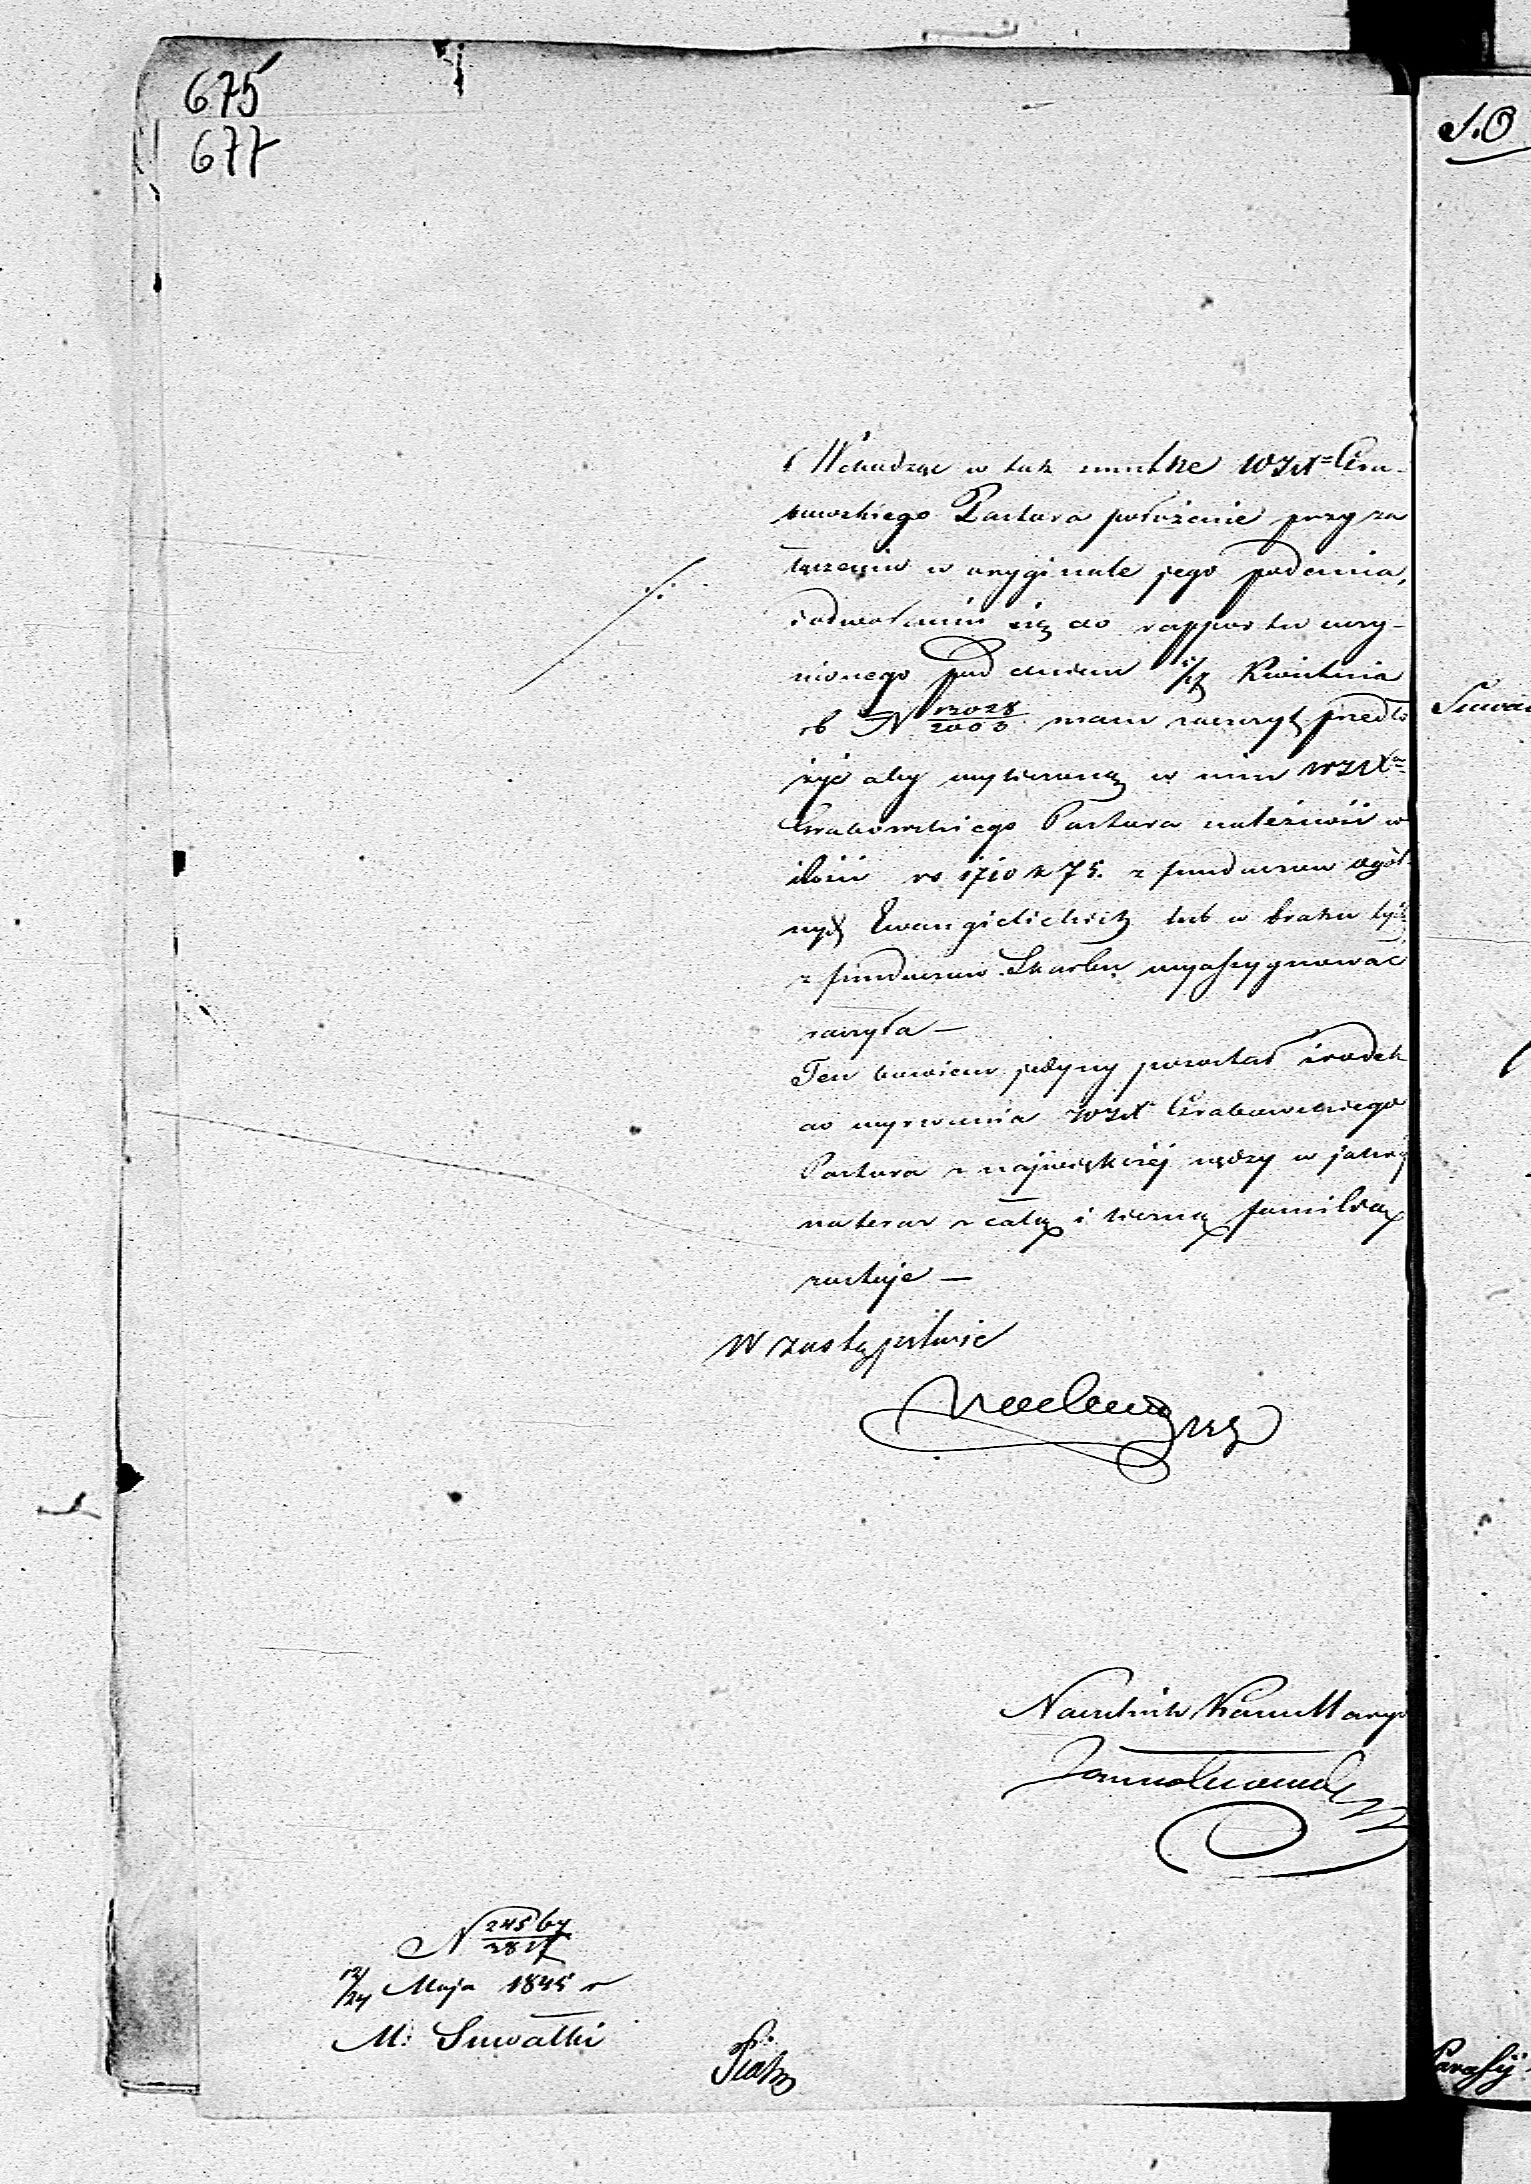 675
677
Wchodząc w tak smutne WJX Gra-
bowskiego Pastora położenie przy za
łączeniu w oryginale jego podania,
i odwołaniu się do rapportu uczy-
nionego pod dniem Kwietnia
rb N 12028/2003 mam zaszczyt przedło
żyć aby wyliczoną w nim WJX
Grabowskiego Pastora należność w
ilości rs 1710 k 75. z funduszów ogól-
nych Ewangielickich lub w braku tychże
z funduszów Skarbu wyassygnować
raczyła —
Ten bowiem jedyny pozostał środek
do wyrwania WJX Grabowskiego
Pastora z największéj nędzy w jakiej
na teraz z całą i liczną familią
zostaje —
W zastępstwie
Naczelnik Kancellaryi
N 24567
12/24 Maja 1845 r
M: Suwałki
S.O
Suwał
Parafij